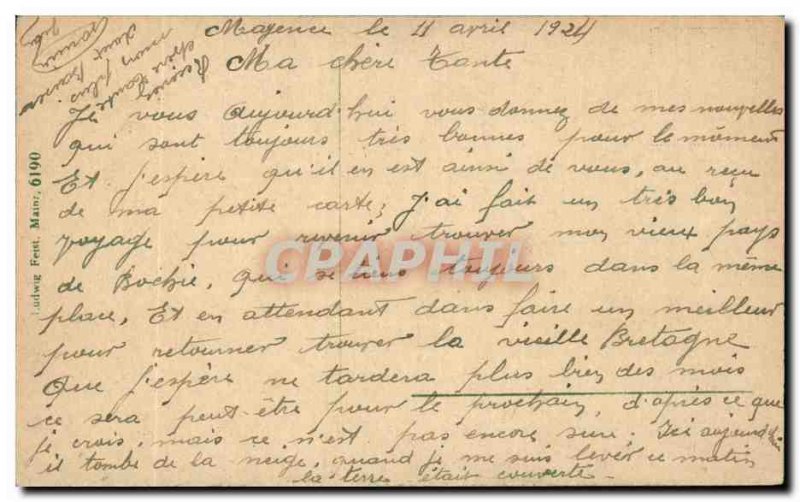 Mayence le 11 avril 1924
Ma chère Tante
Je vous aujourd'hui vous donnez de mes nouvelles
qui sont toujours très bonnes pour le moment
Et j'espère qu'il en est ainsi de vous, au reçu
de ma petite carte; J'ai fait un très bon
voyage pour revenir trouver mon vieux pays
de Bochie, qui se tiens toujours dans la même
place, Et en attendant dans faire un meilleur
pour retourner trouver la vieille Bretagne
Que j'espère ne tardera plus bien des mois
ce sera peut-être pour le prochain, d'après ce que
je crois, mais ce n'est pas encore sure. Ici aujourd'hui
il tombe de la neige, quand je me suis lever ce matin
la terre était couverte.
mon plus
Ludwig Feist, Mainz, 6190
CPAPHIL